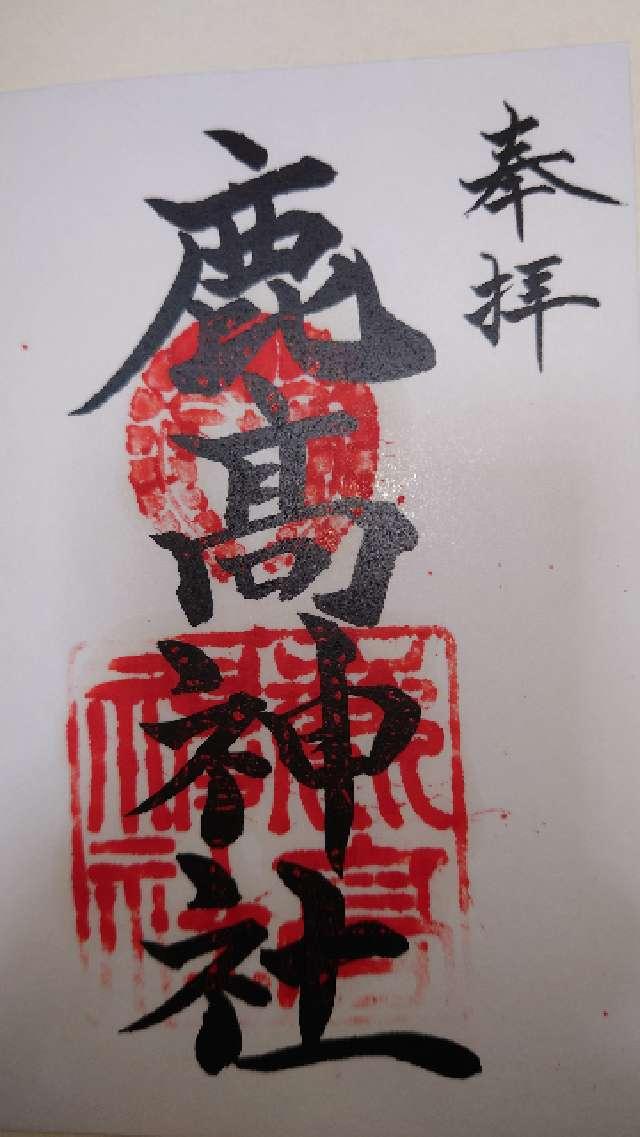 奉拝
鹿高神社